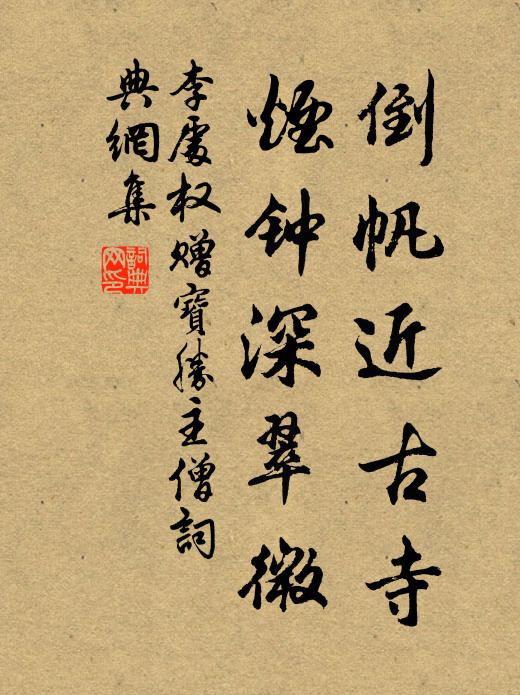 倒帆近古寺
煙钟深翠微
李處权赠寶勝主僧詞
典網集
詞典
网印